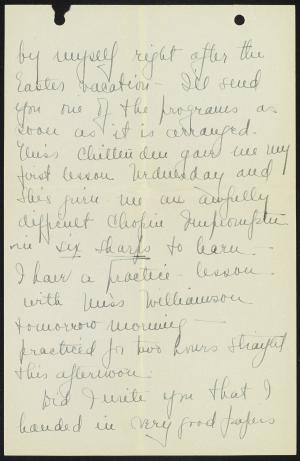 by myself right after the
Easter vacation - I'll send
you one of the programs as
soon as it is arranged.
Miss Chittenden gave me my
first lesson Wednesday and
she's given me an awfully
difficult Chopin Impromptu
in six sharps to learn. -
I have a practice - lesson
with Miss Williamson
tomorrow morning -
practiced for two hours straight
this afternoon.
Did I write you that I
handed in very good papers